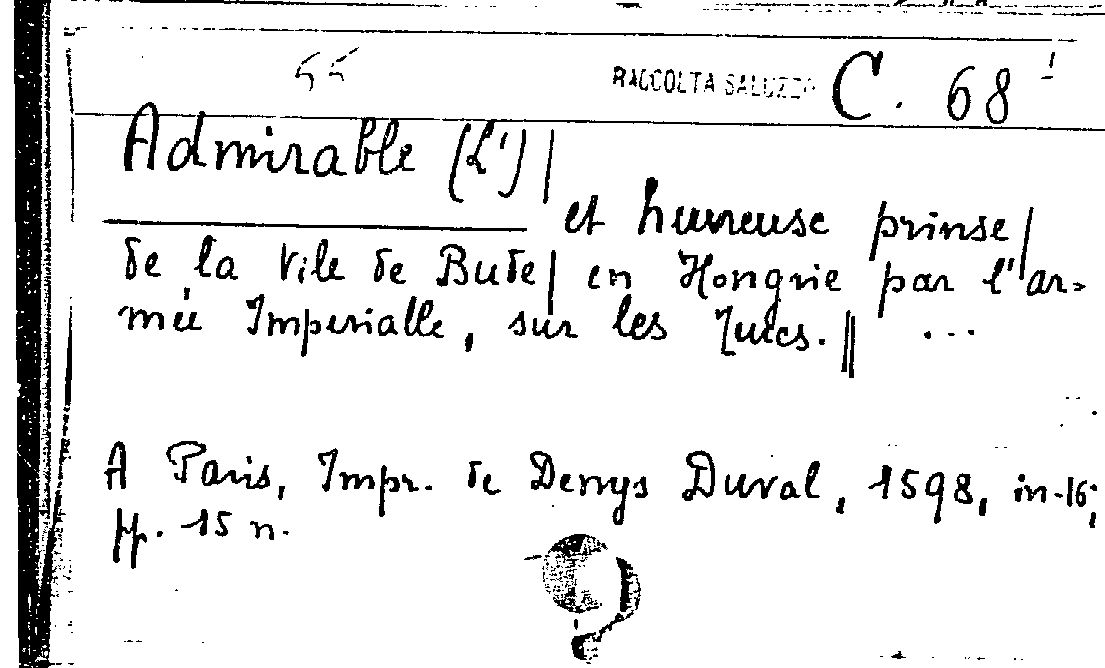 55 RACCOLTA SALUZZO C. 68
Admirable (L')|
et hureuse prinse|
de la vile de Bude| en Hongrie par l'ar-
mée Imperialle, sur les Turcs.|| ...
A Paris, Impr. de Denys Duval, 1598, in-16;
pp. 15 n.